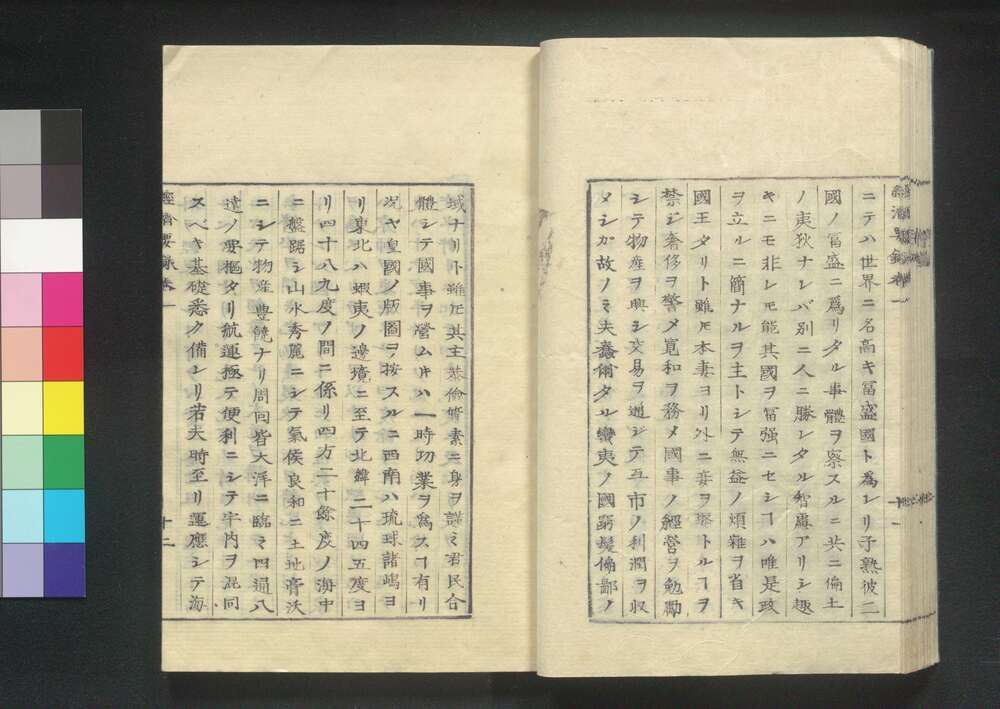 ニテハ世界ニ名高キ冨盛國ト為レリ子熟彼二
國ノ冨盛ニ爲リタル事體ヲ察スルニ共ニ偏土
ノ夷狄ナレバ別ニ人ニ勝レタル智慮アリシ趣
キニモ非レモ能其國ヲ冨强ニセシヿハ唯是政
ヲ立ルニ簡ナルヲ主トシテ無益ノ煩雜ヲ省キ
國王タリト雖𪜈本妻ヨリ外ニ妾ヲ聚トルヿヲ
禁シ奢侈ヲ警メ寬和ヲ務メ國事ノ經營ヲ勉勵
シテ物産ヲ興シ交易ヲ通シテ互市ノ利潤ヲ収
メシガ故ノミ夫蠢爾タル蠻夷ノ國窮髮偏鄙ノ
域ナリト雖𪜈其主恭儉質素ニ身ヲ謹ミ君民合
體シテ國事ヲ營ムキハ一時功業ヲ爲スヿ有リ
况ヤ皇國ノ版圖ヲ按スルニ西南ハ琉球諸嶋ヨ
リ東北ハ蝦夷ノ邊境ニ至テ北緯二十四五度ヨ
リ四十八九度ノ間ニ係リ四方二十餘度ノ海中
ニ盤踞シ山水秀麗ニシテ氣候良和ニ土地膏沃
ニシテ物産豊饒ナリ周囘皆大洋ニ臨ミ四通八
達ノ要樞タリ航運極テ便利ニシテ宇内ヲ混同
スベキ基礎悉ク備レリ若夫時至リ運應シテ海
經濟要錄卷一
十二